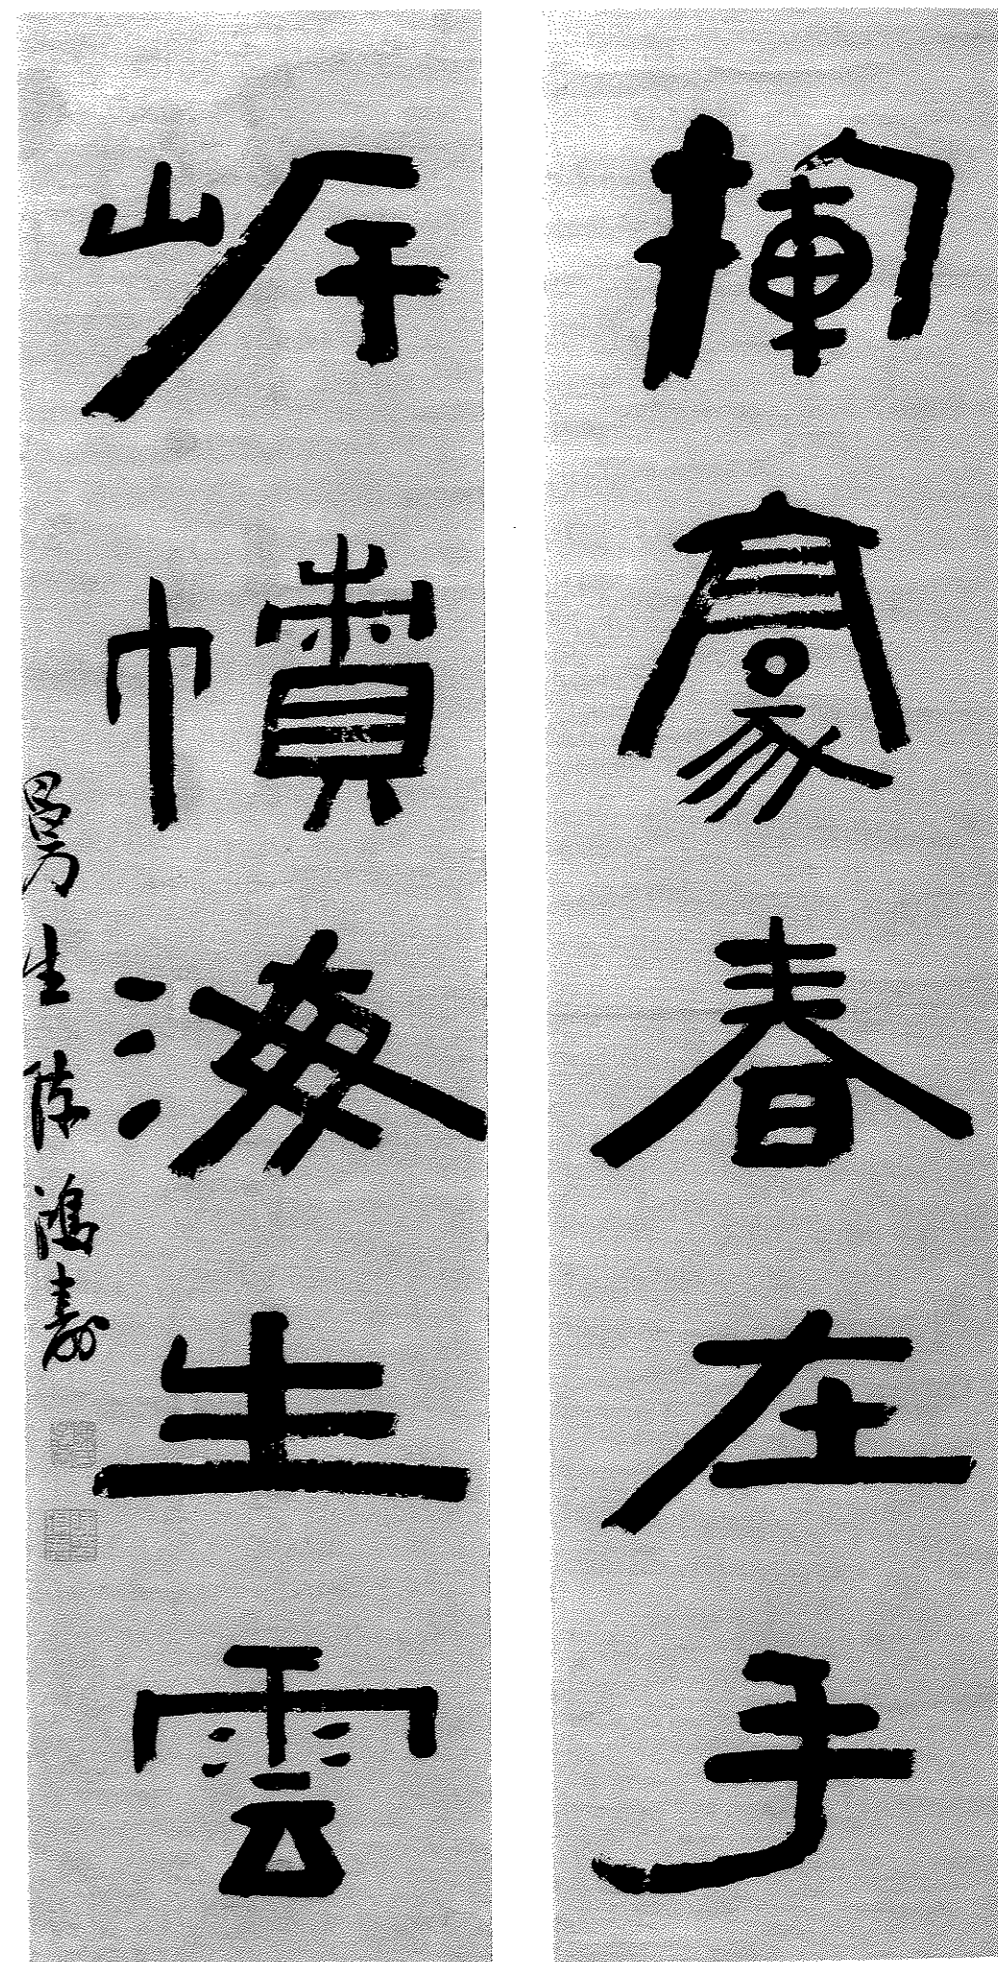 揮豪春在手
岸幘海生雲
曼生陳鴻壽